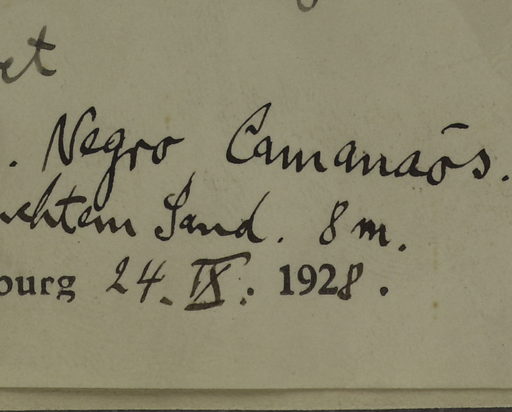 et
. Negro Camanaōs.
uchtem Sand. 8 m.
bourg 24. IX. 1928.